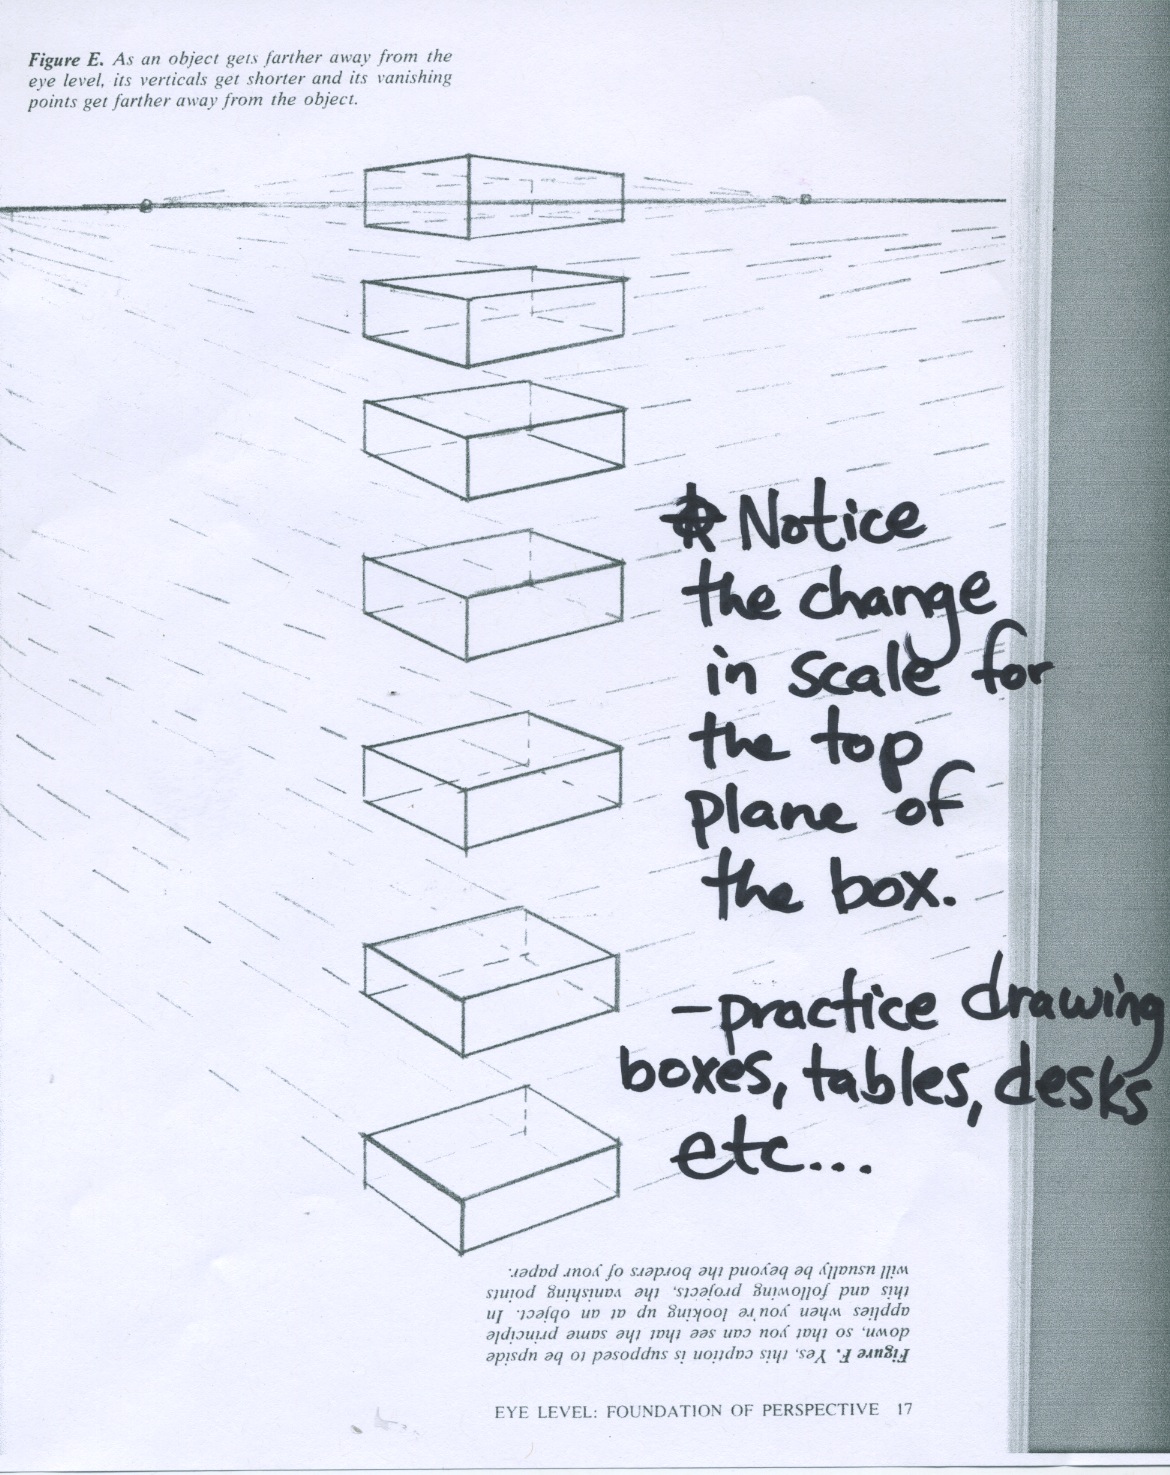 Figure E. As an object gets farther away from the
eye level, its verticals get shorter and its vanishing
points get farther away from the object.
* Notice
the change
in scale for
the top
plane of
the box.
-practice drawing
boxes, tables, desks
etc...
Figure F. Yes, this caption is supposed to be upside
down, so that you can see that the same principle
applies when you're looking up at an object. In
this and following projects, the vanishing points
will usually be beyond the borders of your paper.
EYE LEVEL: FOUNDATION OF PERSPECTIVE 17